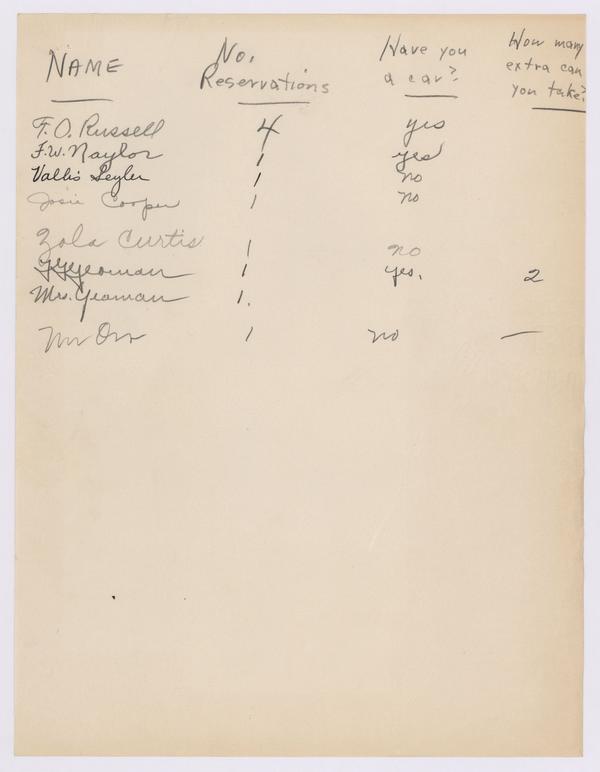 NAME No. Reservations Have you a car? How many extra can you take?
F. O. Russell 4 yes
F. W. Naylor 1 yes
Vallis Seyler 1 no
Josie Cooper 1 no
Zola Curtis 1 no
Yeoman 1 yes. 2
Mrs. Yeoman 1.
1 no —